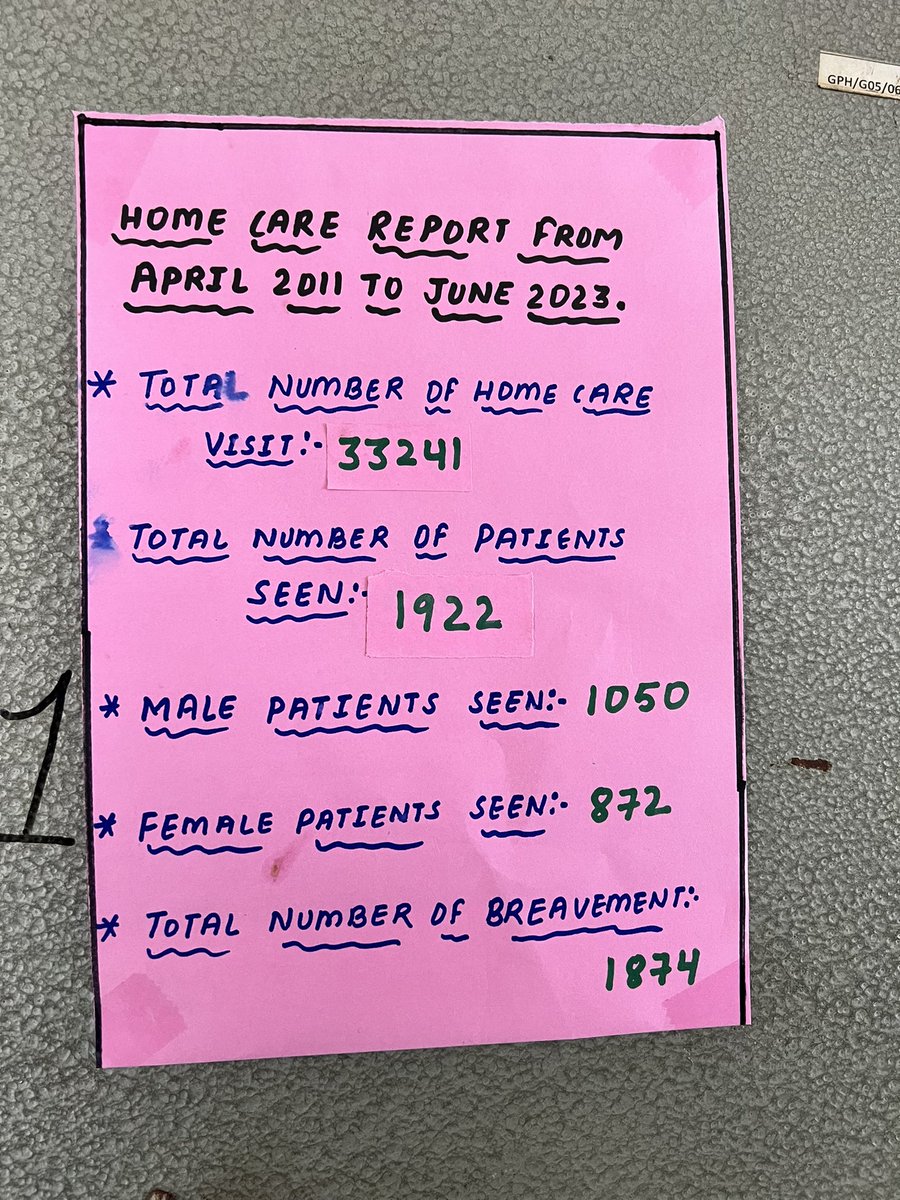 GPH/G05/06
HOME CARE REPORT FROM
APRIL 2011 TO JUNE 2023.
* TOTAL NUMBER OF HOME CARE
VISIT:- 33241
TOTAL NUMBER OF PATIENTS
SEEN:- 1922
* MALE PATIENTS SEEN:- 1050
1
* FEMALE PATIENTS SEEN:- 872
* TOTAL NUMBER OF BREAVEMENT:-
1874